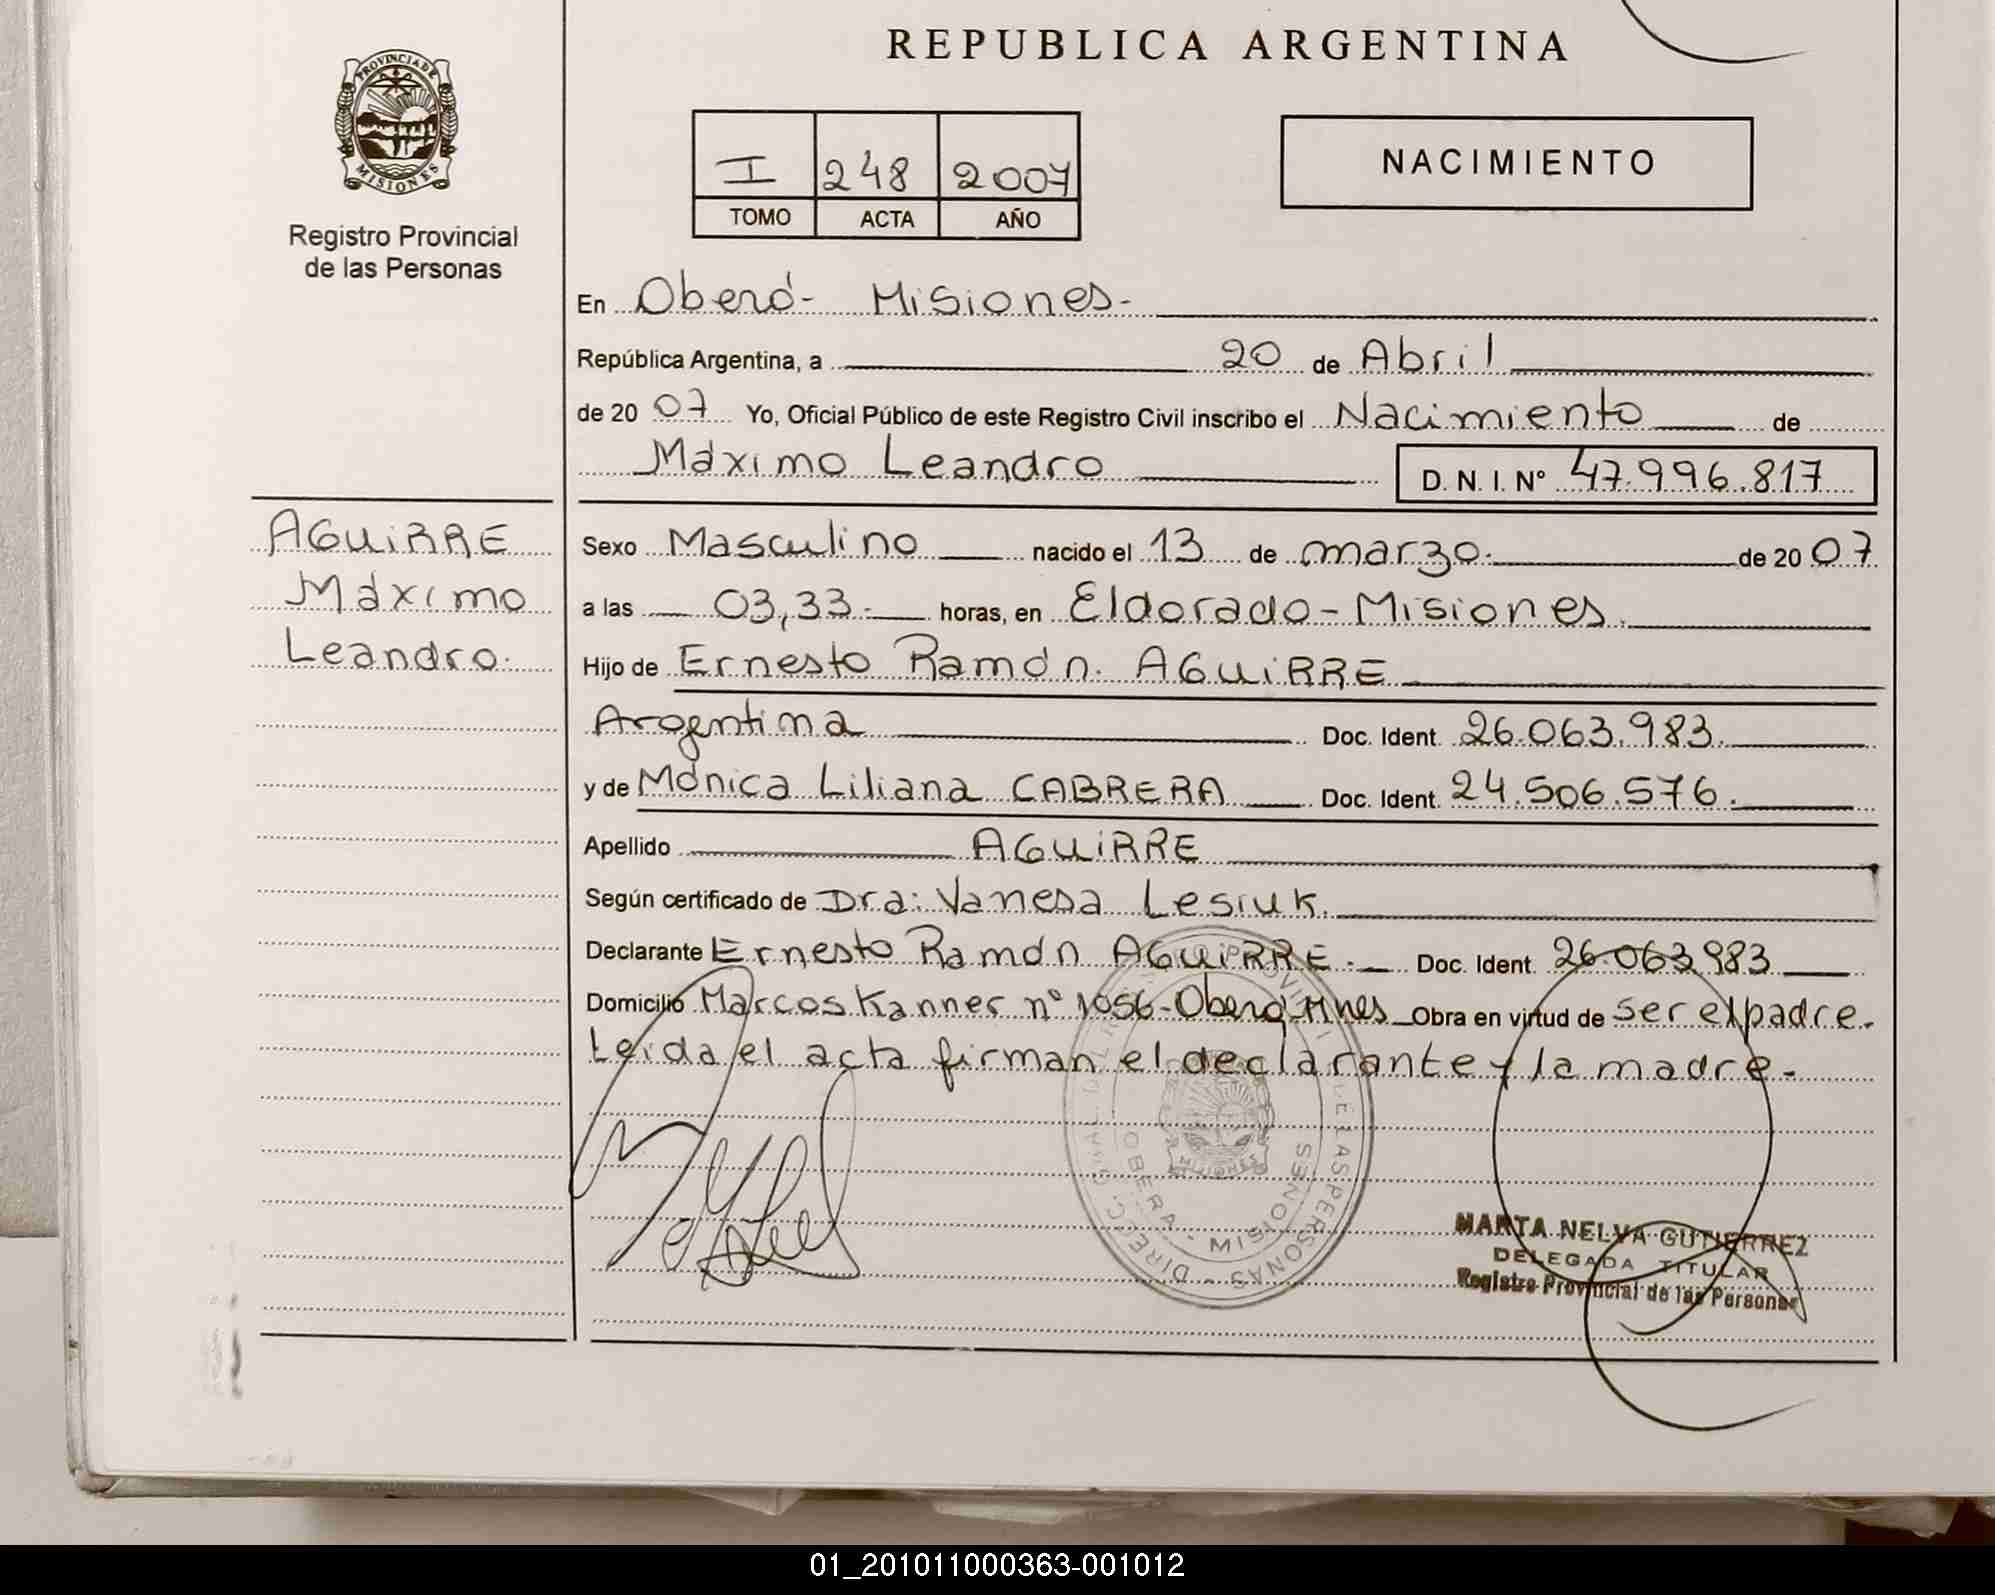 REPUBLICA ARGENTINA
PROVINCIA DE
MISIONES
Registro Provincial
de las Personas
I 248 2007
TOMO ACTA AÑO
NACIMIENTO
En Oberá- Misiones-
República Argentina, a 20 de Abril
de 2007 Yo, Oficial Público de este Registro Civil inscribo el Nacimiento de
Máximo Leandro D. N. I. Nº 47.996.817
AGUiRRE
Máximo
Leandro.
Sexo Masculino nacido el 13 de marzo. de 2007
a las 03,33.- horas, en Eldorado-Misiones.
Hijo de Ernesto Ramón. AGUiRRE
Argentina Doc. Ident. 26.063.983.
y de Mónica Liliana CABRERA Doc. Ident. 24.506.576.
Apellido AGUiRRE
Según certificado de Dra: Vanesa Lesiuk.
Declarante Ernesto Ramón AGUiRRE.- Doc. Ident. 26.063.983
Domicilio Marcos Kanner nº 1056-Oberá Mnes Obra en virtud de ser el padre.
Leída el acta firman el declarante y la madre.-
DIREC. GRAL. DEL REG. PROVINCIAL DE LAS PERSONAS
MISIONES
OBERA - MISIONES
MARTA NELVA GUTIERREZ
DELEGADA TITULAR
Registro Provincial de las Personas
01_201011000363-001012